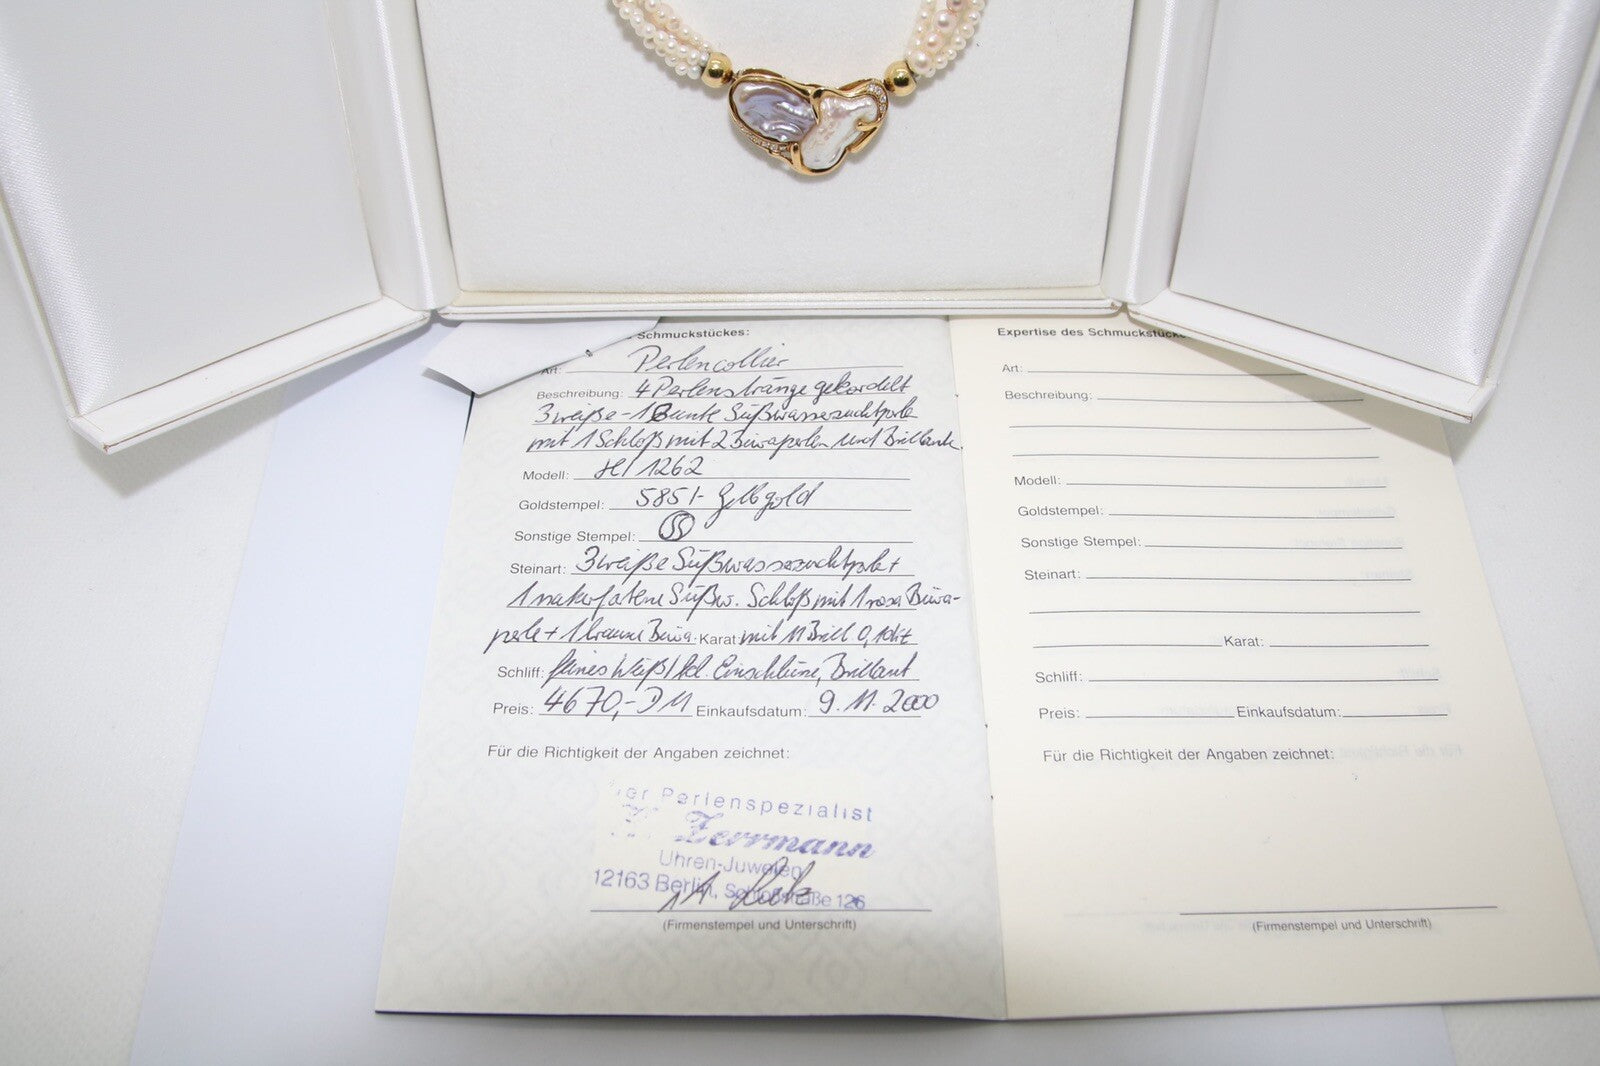 Schmuckstückes:
Art: Perlencollier
Beschreibung: 4 Perlenstränge gekordelt
3 weiße - 1 Bunte Süßwasserzuchtperle
mit 1 Schloß mit 2 Biwaperlen und Brillant.
Modell: 1262
Goldstempel: 585/- Gelbgold
Sonstige Stempel:
Steinart: 3 weiße Süßwasserzuchtperl +
1 naturfarbene Süßw. Schloß mit 1 rosa Biwa-
perle + 1 braune Biwa. Karat: mit 11 Brill 0,10ct
Schliff: feines Weiß / kl. Einschlüsse, Brillant
Preis: 4670,- DM Einkaufsdatum: 9. 11. 2000
Für die Richtigkeit der Angaben zeichnet:
Der Perlenspezialist
Zerrmann
Uhren-Juwelen
12163 Berlin, Schloßstraße 126
(Firmenstempel und Unterschrift)
Expertise des Schmuckstücke
Art:
Beschreibung:
Modell:
Goldstempel:
Sonstige Stempel:
Steinart:
Karat:
Schliff:
Preis: Einkaufsdatum:
Für die Richtigkeit der Angaben zeichnet:
(Firmenstempel und Unterschrift)